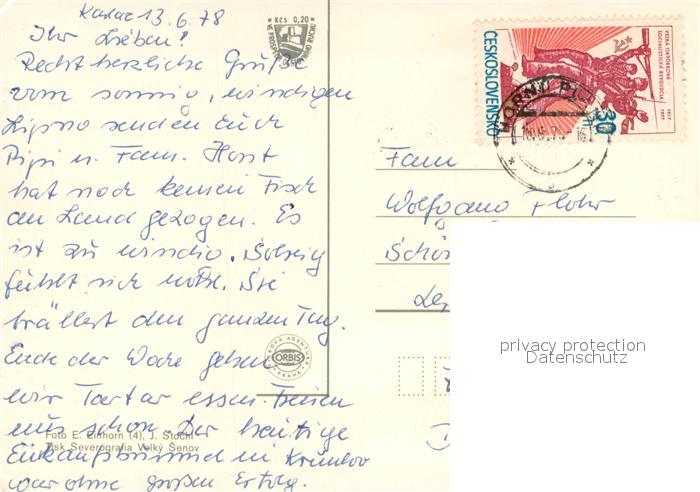 13.6.78
Ihr Lieben!
Recht herzliche Grüße
vom sonnig, windigen
Lipno senden Euch
Pipi u. Fam. Horst
hat noch keinen Fisch
an Land gezogen. Es
ist zu windig. Solveig
fühlt sich wohl. Sie
brällert den ganzen Tag.
Ende der Woche gehen
wir Tartar essen. Freuen
uns schon. Der heutige
Einkaufsbummel in Krumlov
war ohne großen Erfolg.
Kčs 0,20
ORBIS
PRAHA
Foto E. Einhorn (4), J. Štochl
Tisk Severografia Velký Šenov
ČESKOSLOVENSKO
VELKÁ ŘÍJNOVÁ
SOCIALISTICKÁ REVOLUCE
1917
1977
30
Fam
Wolfgang Flohr
Schön
privacy protection
Datenschutz